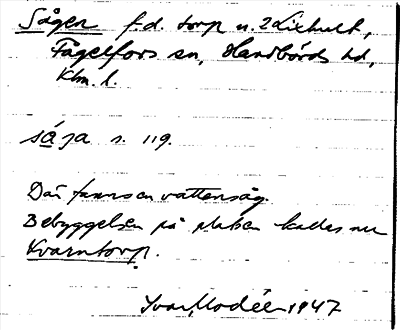 Sågen f.d. torp u. 2 Liehult,
Fågelfors sn, Handbörds hd,
Klm. l.
såga s. 119.
Där fanns en vattensåg.
Bebyggelsen på platsen kallas nu
Kvarntorp.
Ivar Modéer 1947